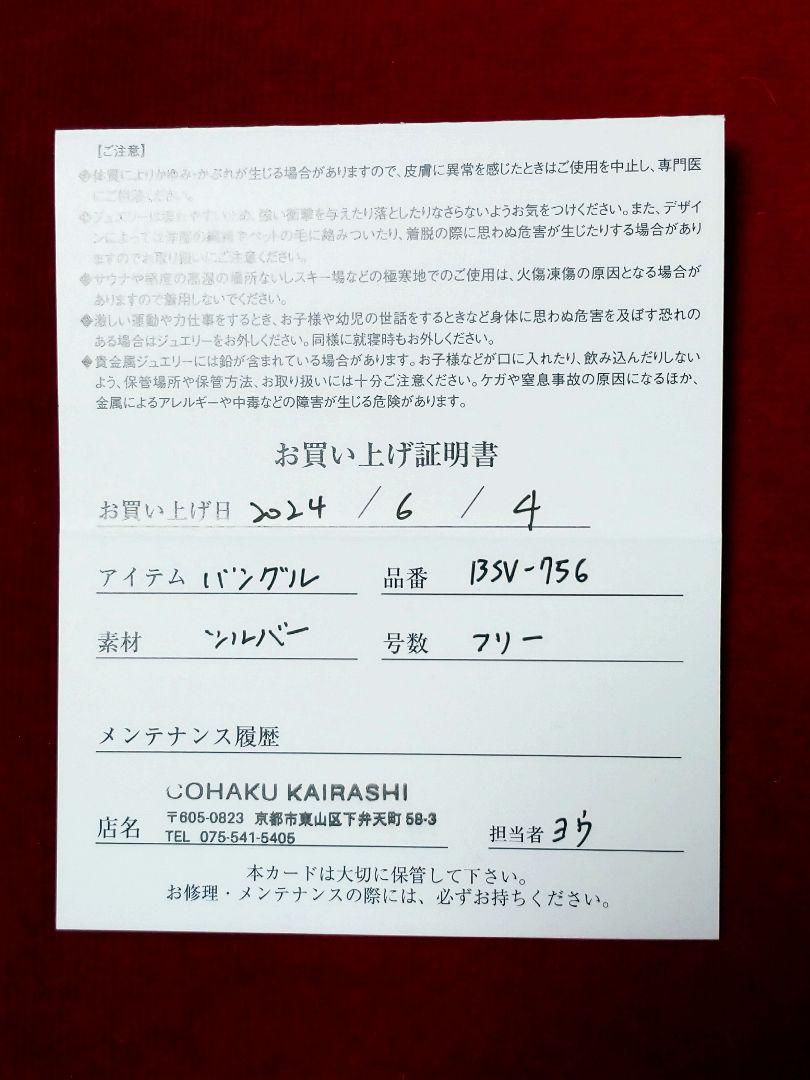 【ご注意】
◆体質によりかゆみ・かぶれが生じる場合がありますので、皮膚に異常を感じたときはご使用を中止し、専門医
にご相談ください。
◆ジュエリーは壊れやすいため、強い衝撃を与えたり落としたりなさらないようお気をつけください。また、デザイ
ンによっては衣服の繊維やペットの毛に絡みついたり、着脱の際に思わぬ危害が生じたりする場合があり
ますのでお取り扱いにご注意ください。
◆サウナや極度の高温の場所ないしスキー場などの極寒地でのご使用は、火傷凍傷の原因となる場合が
ありますので着用しないでください。
◆激しい運動や力仕事をするとき、お子様や幼児の世話をするときなど身体に思わぬ危害を及ぼす恐れの
ある場合はジュエリーをお外しください。同様に就寝時もお外しください。
◆貴金属ジュエリーには鉛が含まれている場合があります。お子様などが口に入れたり、飲み込んだりしない
よう、保管場所や保管方法、お取り扱いには十分ご注意ください。ケガや窒息事故の原因になるほか、
金属によるアレルギーや中毒などの障害が生じる危険があります。
お買い上げ証明書
お買い上げ日 2024 / 6 / 4
アイテム バングル 品番 BSV-756
素材 シルバー 号数 フリー
メンテナンス履歴
COHAKU KAIRASHI
〒605-0823 京都市東山区下弁天町 58-3
店名 TEL 075-541-5405 担当者 ヨウ
本カードは大切に保管して下さい。
お修理・メンテナンスの際には、必ずお持ちください。